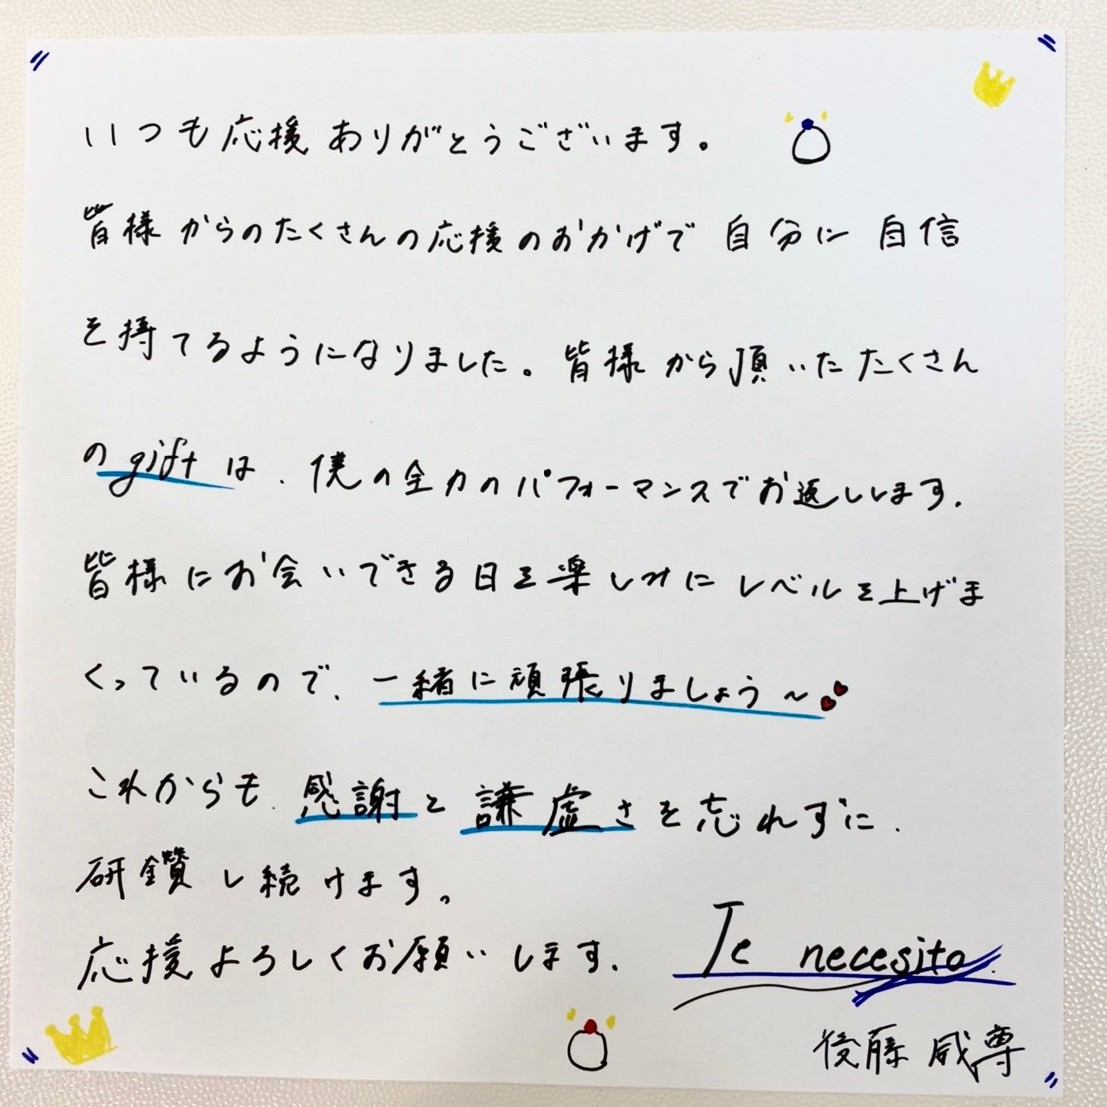 いつも応援ありがとうございます。
皆様からのたくさんの応援のおかげで自分に自信
を持てるようになりました。皆様から頂いたたくさん
のgiftは、僕の全力のパフォーマンスでお返しします。
皆様にお会いできる日を楽しみにレベルを上げま
くっているので、一緒に頑張りましょう～
これからも、感謝と謙虚さを忘れずに、
研鑽し続けます。
応援よろしくお願いします。
Te necesito.
後藤威尊